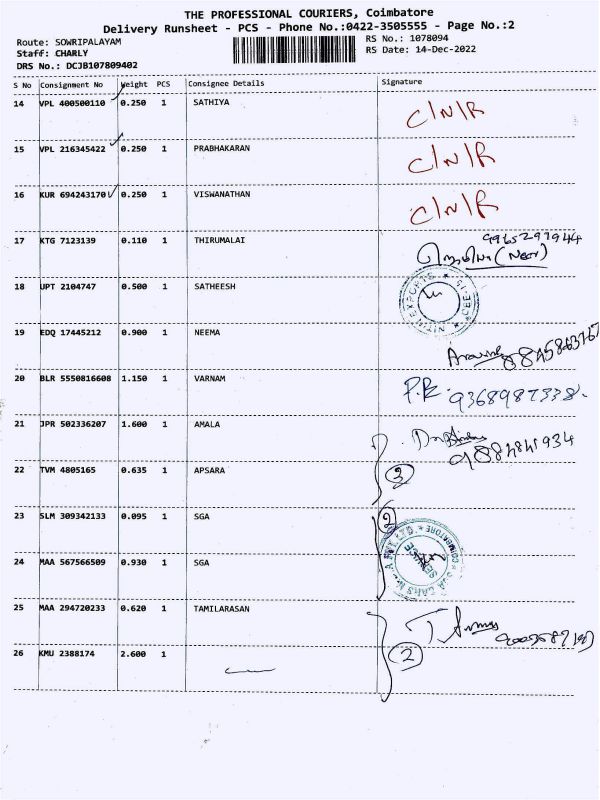 THE PROFESSIONAL COURIERS, Coimbatore
Delivery Runsheet - PCS - Phone No.:0422-3505555 - Page No.:2
Route: SOWRIPALAYAM RS No.: 1078094
Staff: CHARLY RS Date: 14-Dec-2022
DRS No.: DCJB107809402
S No Consignment No Weight PCS Consignee Details Signature
14 VPL 400500110 0.250 1 SATHIYA C/N/R
15 VPL 216345422 0.250 1 PRABHAKARAN C/N/R
16 KUR 694243170 0.250 1 VISWANATHAN C/N/R
9965299944
17 KTG 7123139 0.110 1 THIRUMALAI (Near)
18 UPT 2104747 0.500 1 SATHEESH
NITIN EXPORTS
19 EDQ 17445212 0.900 1 NEEMA
20 BLR 5550816608 1.150 1 VARNAM P.R. 9368987338.
21 JPR 502336207 1.600 1 AMALA
22 TVM 4805165 0.635 1 APSARA 3
23 SLM 309342133 0.095 1 SGA 2
COIMBATORE
SERVICE
SGA CARS
24 MAA 567566509 0.930 1 SGA
25 MAA 294720233 0.620 1 TAMILARASAN
26 KMU 2388174 2.600 1 2